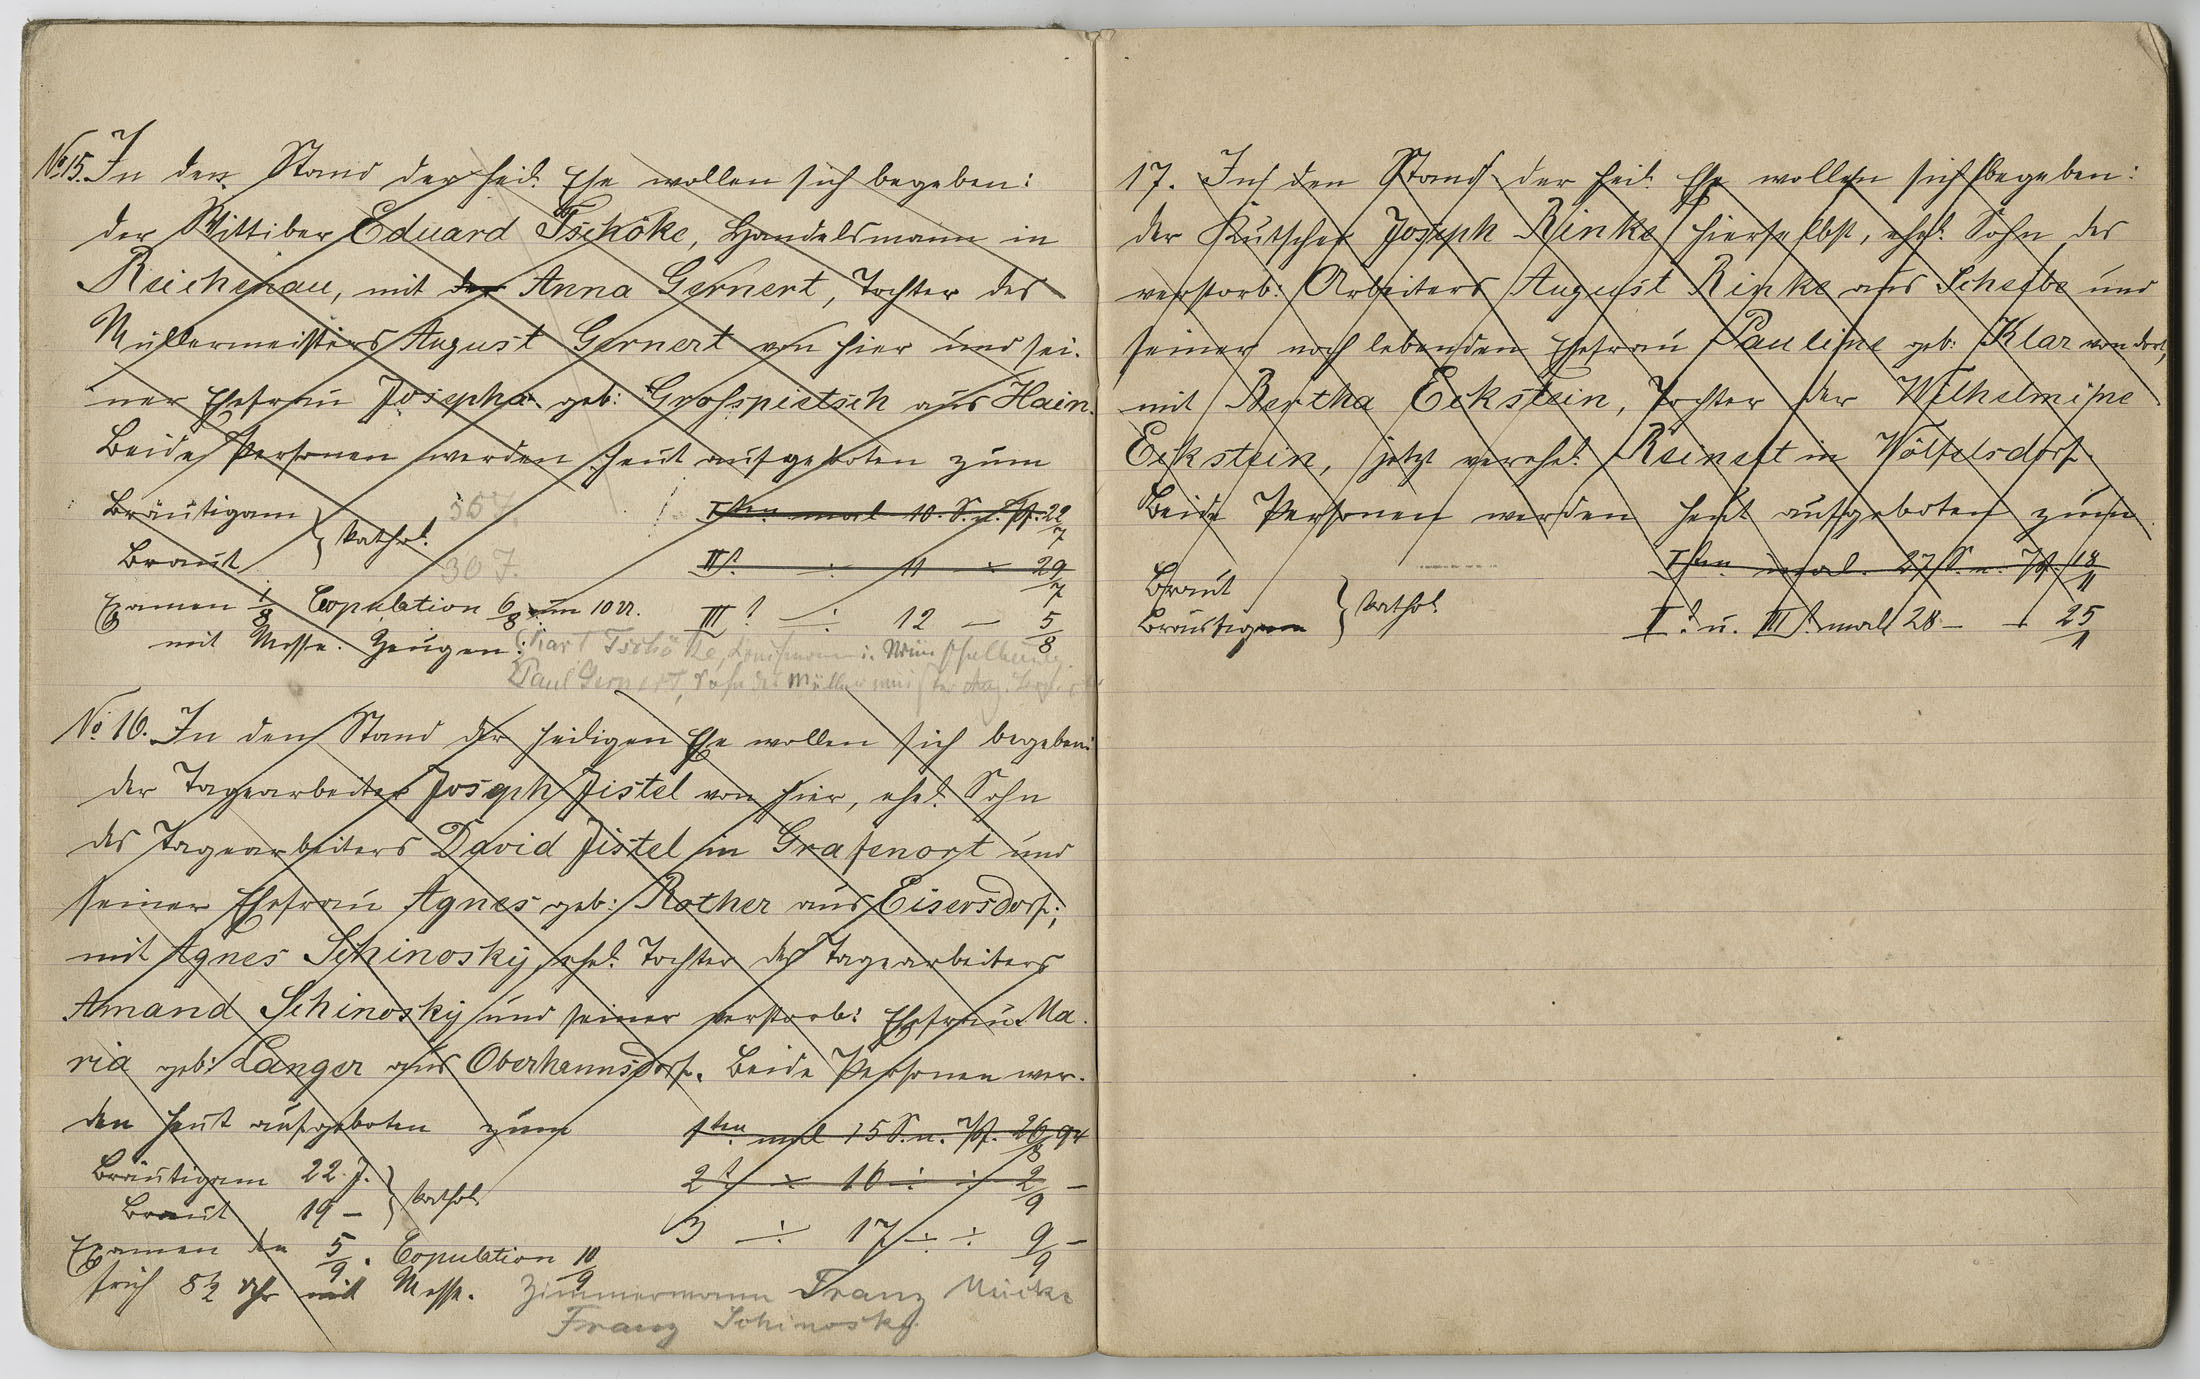 No 15. In den Stand der heil. Ehe wollen sich begeben:
der Wittiber Eduard Tschöke, Handelsmann in
Reichenau, mit der Anna Gernert, Tochter des
Müllermeisters August Gernert von hier und sei-
ner Ehefrau Josepha geb: Großpietsch aus Hain.
Beide Personen werden heut aufgeboten zum
Bräutigam 35 J.
Braut 30 J.
} kathol.
Iten mal 10. S. n. Pf. 22/7
IIt. ÷ 11 ÷ 29/7
IIIt ÷ 12 — 5/8
Examen 1/8 Copulation 6/8 um 10 U.
mit Messe. Zeugen:
Karl Tschöke,
Paul Gernert, Sohn des Müllermeister Aug. Gernert
No 16. In den Stand der heiligen Ehe wollen sich begeben:
der Tagearbeiter Joseph Jistel von hier, ehel. Sohn
des Tagearbeiters David Jistel in Grafenort und
seiner Ehefrau Agnes geb: Rother aus Eisersdorf;
mit Agnes Schinosky, ehel. Tochter des Tagearbeiters
Amand Schinosky und seiner verstorb: Ehefrau Ma-
ria geb: Langer aus Oberhannsdorf. Beide Personen wer-
den heut aufgeboten zum
1ten mal 15 S. n. Pf. 26/8 94
2t ÷ 16 ÷ ÷ 2/9 —
3 ÷ 17 ÷ ÷ 9/9 —
Bräutigam 22 J.
Braut 19 —
} kathol.
Examen den 5/9. Copulation 10/9
früh 8½ Uhr mit Messe. Zimmermann Franz Mücke
Franz Schinosky
17. In den Stand der heil. Ehe wollen sich begeben:
der Kutscher Joseph Rinke hierselbst, ehel. Sohn des
verstorb: Arbeiters August Rinke aus Scheibe und
seiner noch lebenden Ehefrau Pauline geb: Klar von dort,
mit Bertha Eckstein, Tochter der Wilhelmine
Eckstein, jetzt verehel. Reinelt in Wölfelsdorf.
Beide Personen werden heut aufgeboten zum
Iten mal. 27 S. n. Pf. 18/11
II t. u. III t. mal 28 — 25/11
Braut
Bräutigam
} kathol.